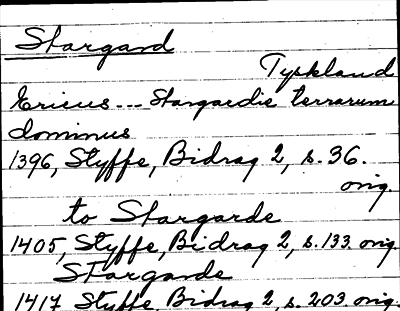 Stargard
Tyskland
Ericus --- Stargardie terrarum
dominus
1396, Styffe, Bidrag 2, s. 36.
orig.
to Stargarde
1405, Styffe, Bidrag 2, s. 133 orig.
Stargarde
1417 Styffe, Bidrag 2, s. 203 orig.